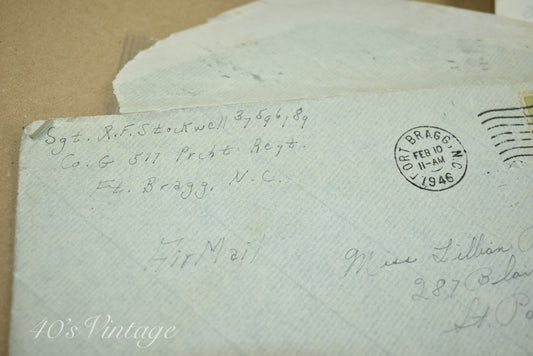 Sgt. R.F. Stockwell 37596789
Co. G 517 Prcht Regt.
Ft. Bragg, N.C.
FORT BRAGG, N.C.
FEB 10
11-AM
1946
Air Mail
Miss Lillian
287
St.
40's Vintage